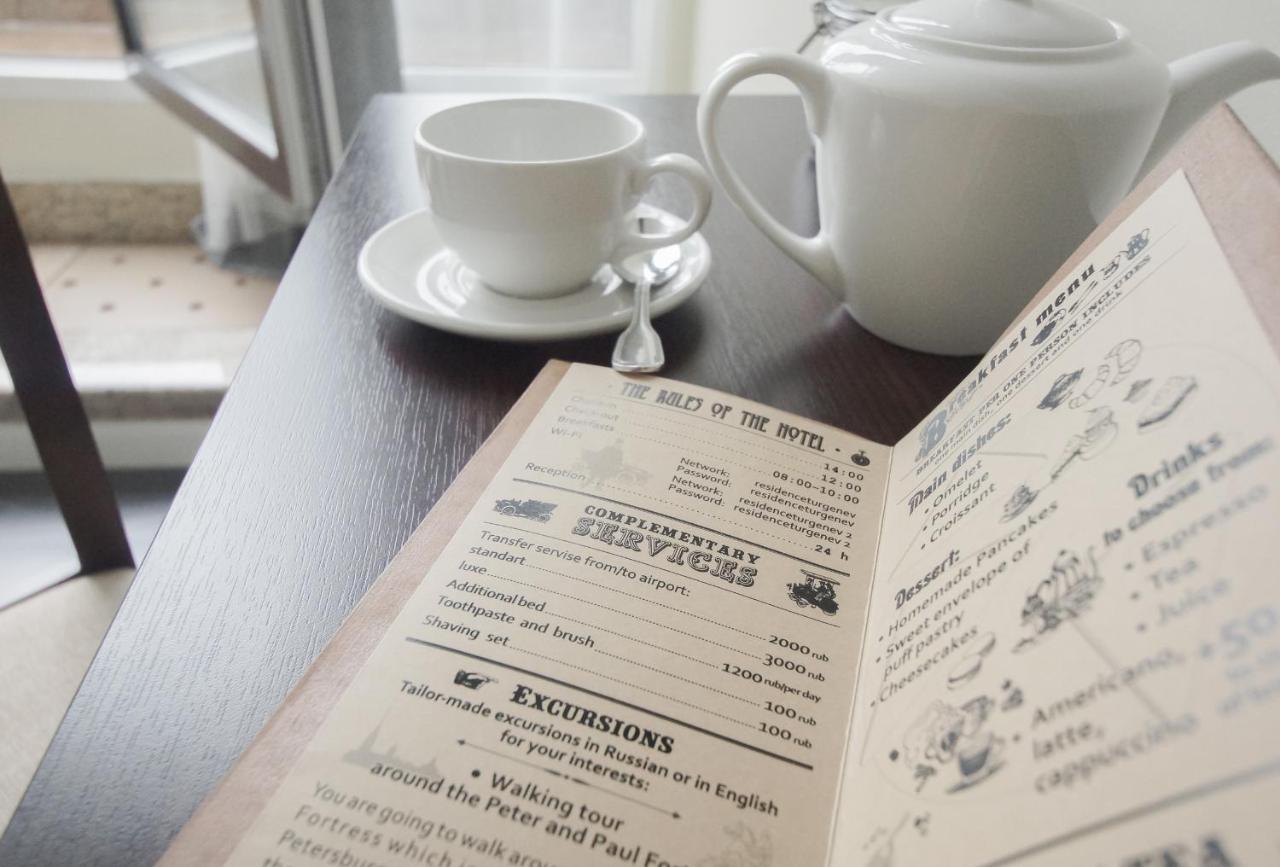 THE RULES OF THE HOTEL
Check-in 14:00
Check-out 12:00
Breakfasts 08:00–10:00
Wi-Fi Network: residenceturgenev
Password: residenceturgenev
Network: residenceturgenev 2
Password: residenceturgenev 2
Reception 24 h
COMPLEMENTARY
SERVICES
Transfer servise from/to airport:
standart 2000 rub
luxe 3000 rub
Additional bed 1200 rub/per day
Toothpaste and brush 100 rub
Shaving set 100 rub
EXCURSIONS
Tailor-made excursions in Russian or in English
for your interests:
• Walking tour
around the Peter and Paul
You are going to walk
Fortress which
Breakfast menu
BREAKFAST PER ONE PERSON INCLUDES
one main dish, one dessert and one drink
Main dishes:
• Omelet
• Porridge
• Croissant
Dessert:
• Homemade Pancakes
• Sweet envelope of
puff pastry
• Cheesecakes
Drinks
to choose from:
• Espresso
• Tea
• Juice
• Americano,
latte,
cappuccino
+50